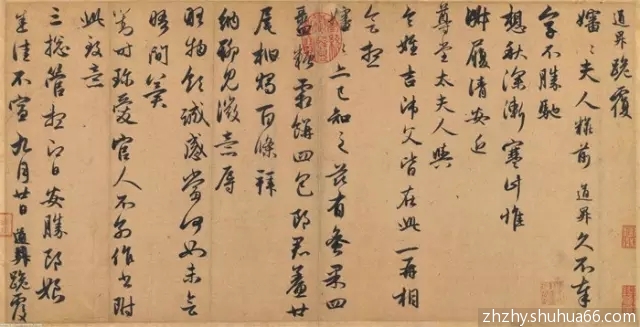 道昇跪覆
嬸〻夫人糚前道昇久不奉
字不勝馳
想秋深漸寒計惟
淑履請安近
尊堂太夫人與
令姪吉師父皆在此一再相
會想
嬸〻亦已知之茲有蜜果四
盝糖霜餅四包郎君鯗廿
尾柏燭百條拜
納聊見微意辱
物領誠感當何如未會
晤間冀
對時珍愛官人不別作書附
此致意
三總管想即日安勝郎娘
悉佳不宣九月廿日道昇跪覆
zhzhy.shuhua66.com